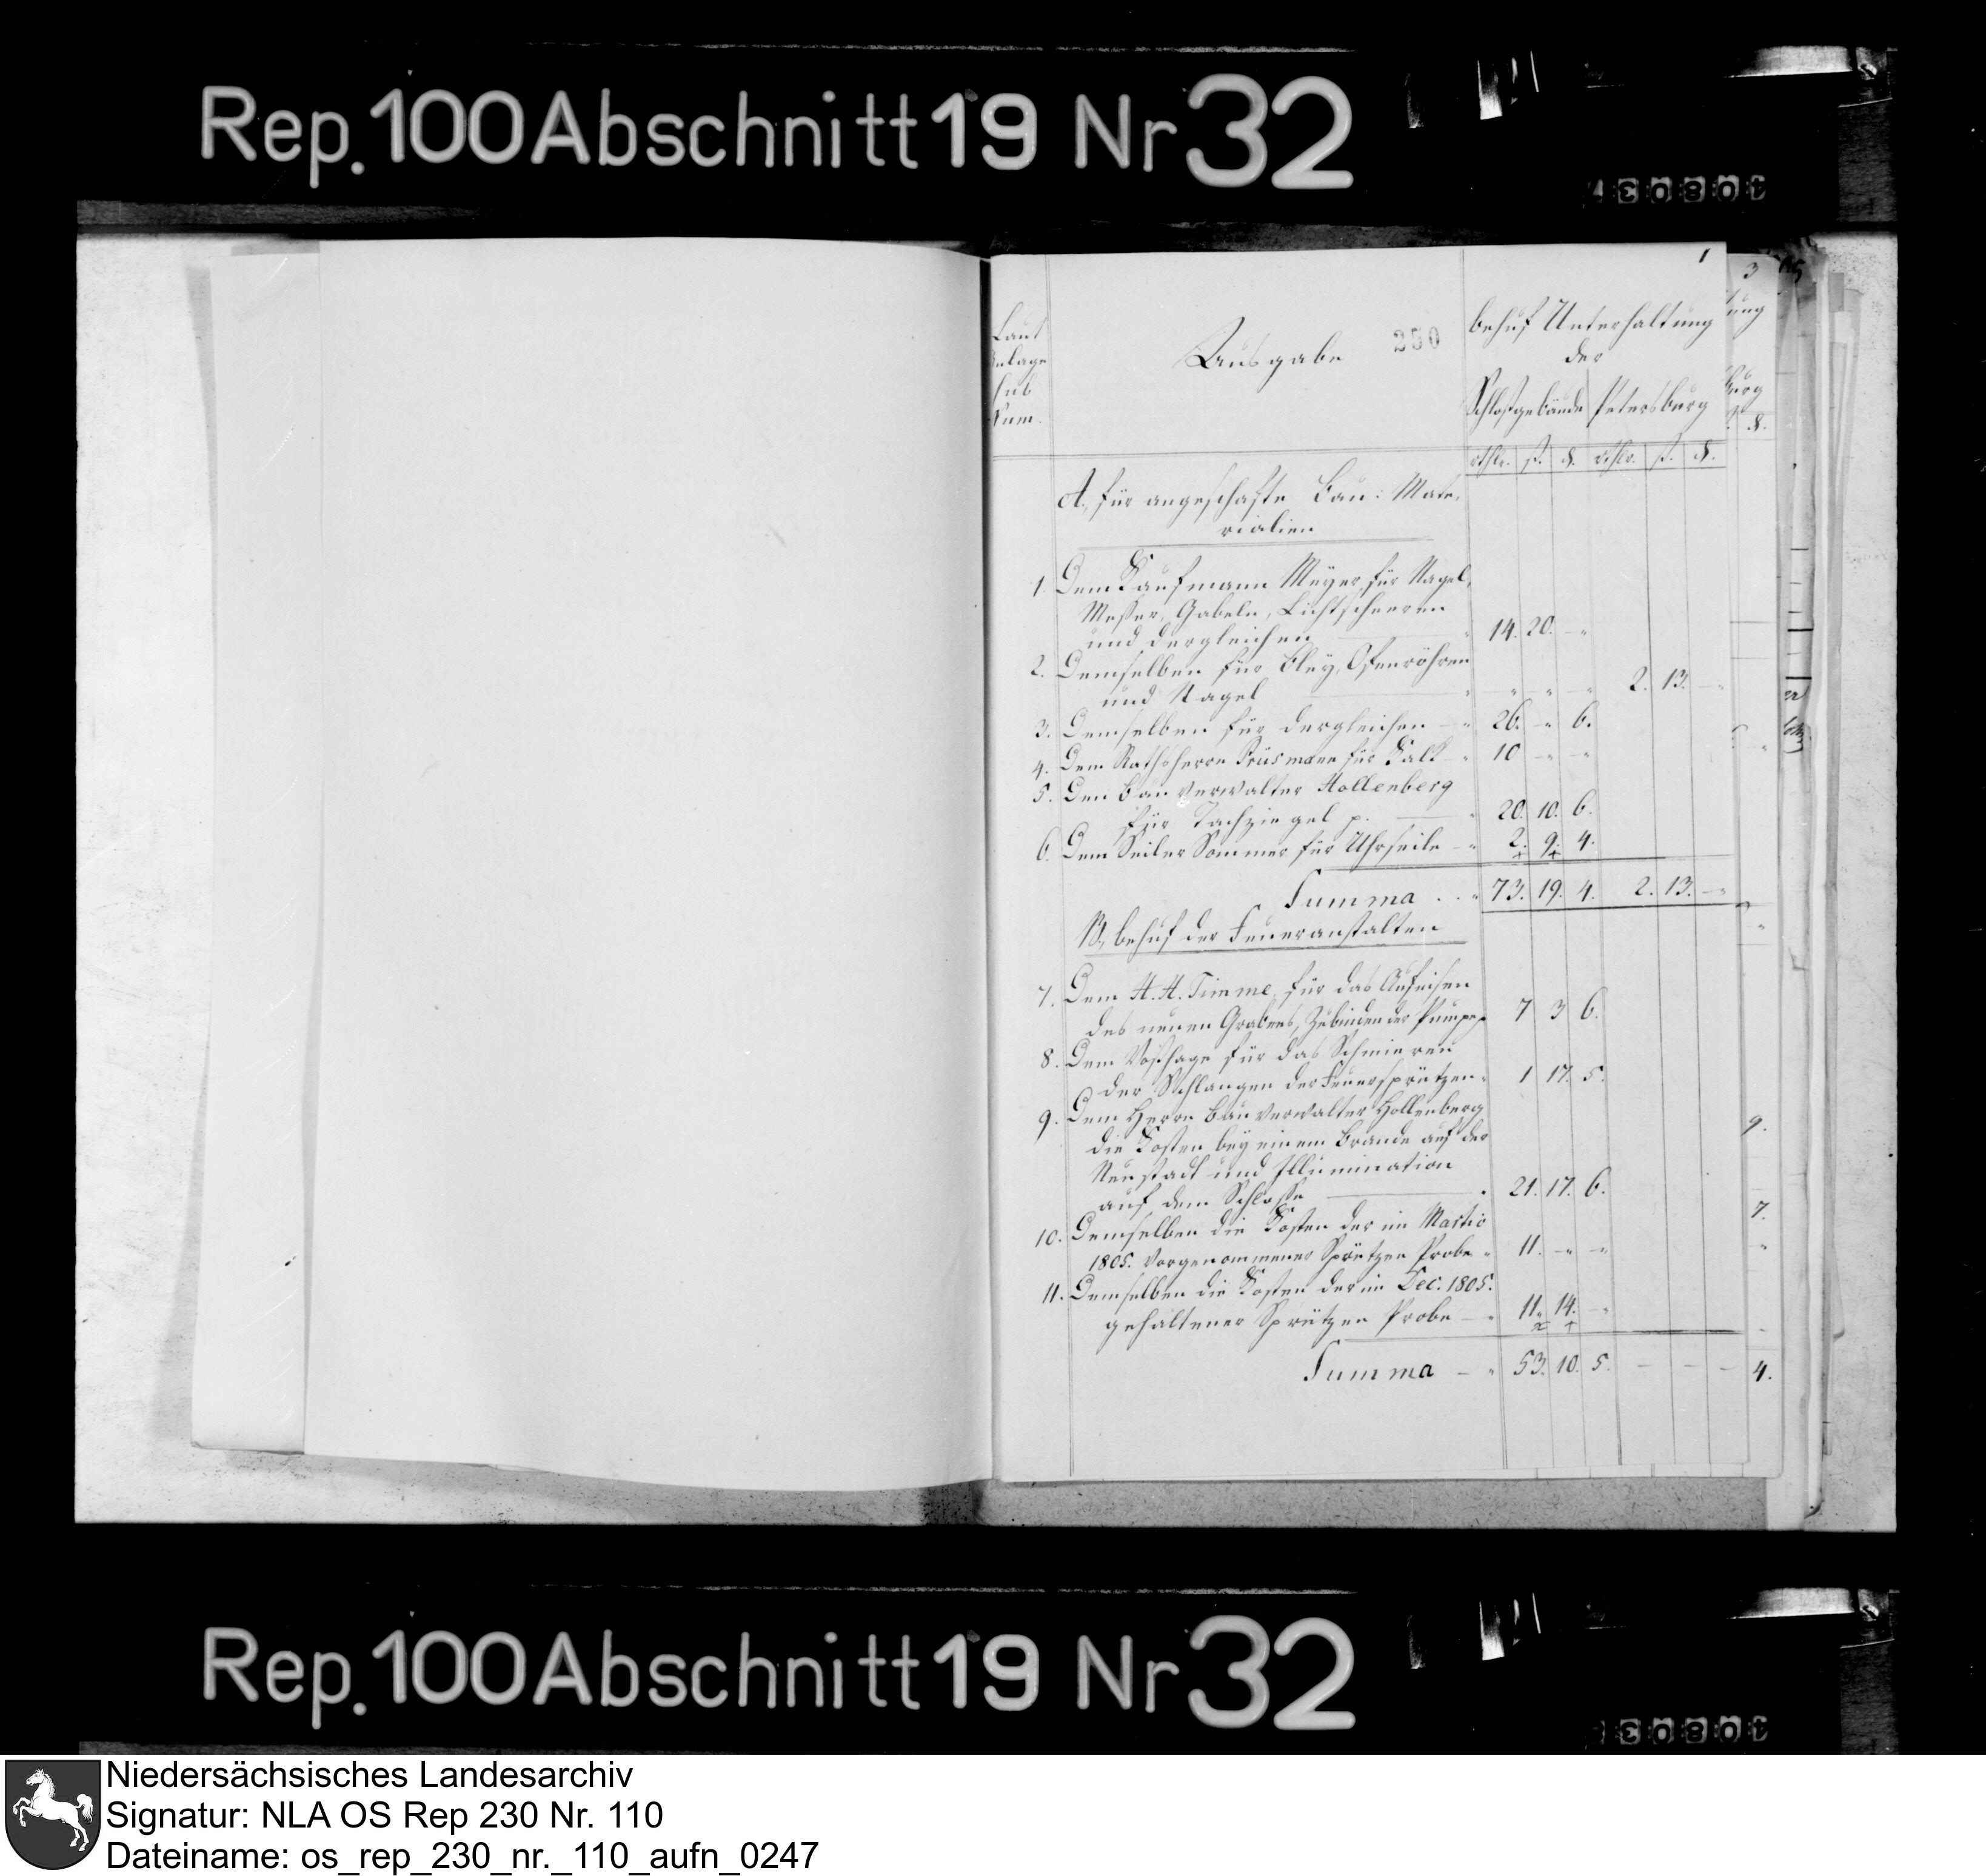 Rep. 100 Abschnitt 19 Nr 32
1
250
Laut
Anlage
sub
Num.
Ausgabe
behuf Unterhaltung
der
Schloßgebäude Petersburg
rthlr. ß. d. rthlr. ß. d.
A, für angeschafte Bau: Mate,
rialien
1. Dem Kaufmann Meyer, für Nagel,
Messer, Gabeln, Lichtscheeren
und dergleichen 14. 20. -
2. Demselben für Bley, Ofenröhren
und Nagel - - - 2. 13. -
3. Demselben für dergleichen 26. - 6.
4. Dem Rathsherrn Prüsmann für Kalk 10 - -
5. Den Bauverwalter Hollenberg
für Dachziegel p. 20. 10. 6.
6. Dem Seiler Sommer für Uhrseile 2. 9. 4.
Summa 73. 19. 4. 2. 13. -
B, behuf der Feueranstalten
7. Dem H. H. Timme, für das Aufeisen
des neuen Grabens, Zubinden der Pumpe p 7 3 6.
8. Dem Voßhage für das Schmieren
der Schlangen der Feuersprützen 1 17. 5.
9. Dem Herrn Bauverwalter Hollenberg
die Kosten bey einem Brande auf der
Neustadt und Illumination
auf dem Schlosse 21. 17. 6.
10. Demselben die Kosten der im Martio
1805. vorgenommener Sprützen Probe 11. - -
11. Demselben die Kosten der im Dec. 1805.
gehaltener Sprützen Probe 11. 14. -
Summa 53. 10. 5. - - -
3
ung
burg
d.
9.
7.
4.
Rep. 100 Abschnitt 19 Nr 32
Niedersächsisches Landesarchiv
Signatur: NLA OS Rep 230 Nr. 110
Dateiname: os_rep_230_nr._110_aufn_0247